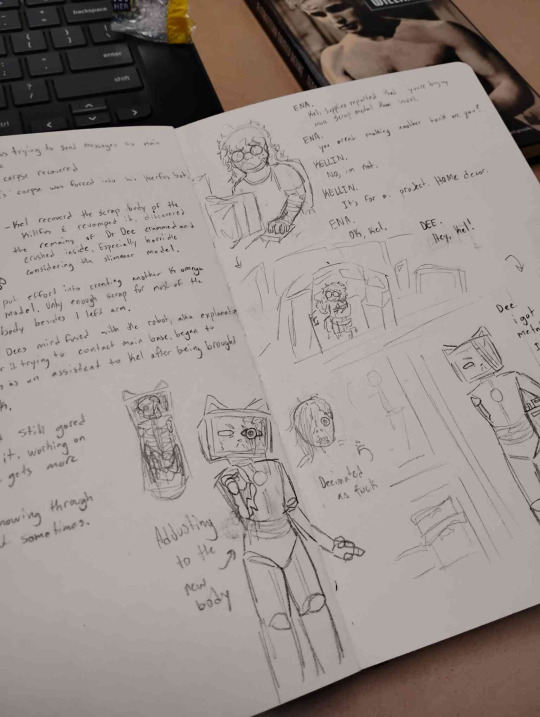 backspace
enter
shift
WILLIA
was trying to send messages to main
corpse recovered
corpse was forced into his
- Kel recovered the scrap body of the
Killfin & revamped it, discovered
the remains of Dr Dee crammed and
crushed inside. Especially horrific
considering the slimmer model.
put effort into creating another
model. Only enough scrap for most of the
body besides 1 left arm.
Dees mind fused with the robot, also explaining
it trying to contact main base. began to
as an assistant to Kel after being brought
still gored
it. working on
gets more
showing through
sometimes.
Addusting
to the
new
body
ENA.
Kel, supplies reported that you're buying
more scrap metal than usual.
ENA.
you arent making another build are you?
KELLIN.
No, im not.
KELLIN.
It's for a. project. Home decor.
ENA.
Ok, Kel.
DEE.
Hey, Kel!
Dee
i got
metal
Decimated
as fuck